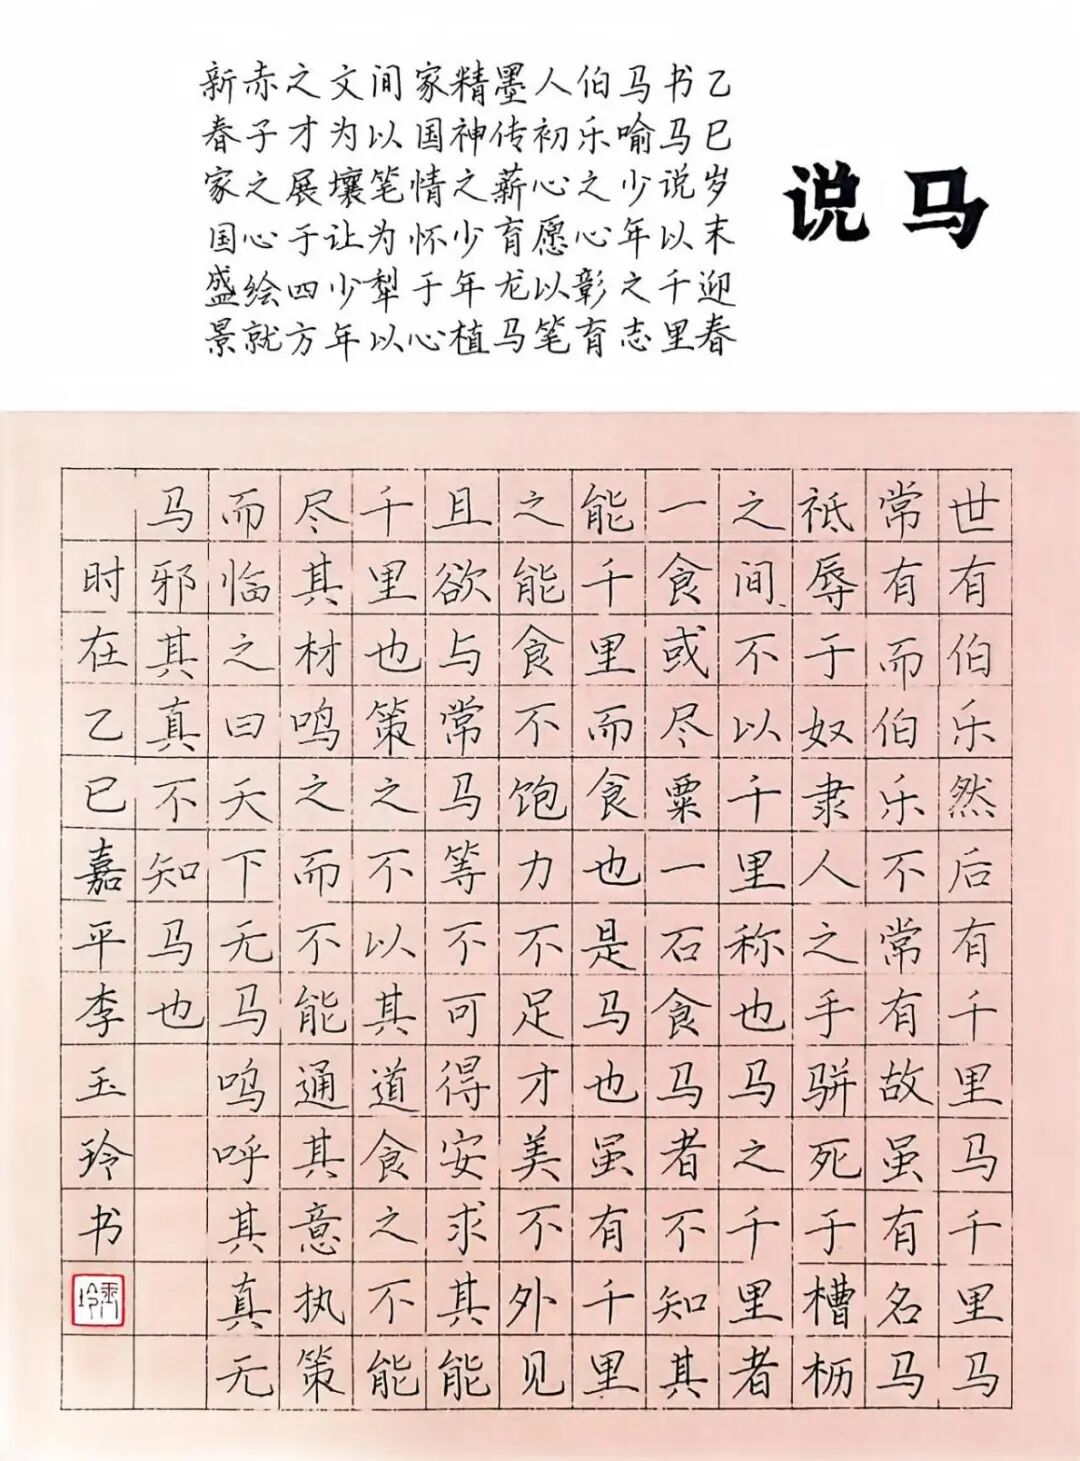 马说
乙巳岁末迎春
书马说以千里
马喻少年之志
伯乐之心彰育
人初心愿以笔
墨传薪育龙马
精神之少年植
家国情怀于心
间以笔为犁以
文为壤让少年
之才展于四方
赤子之心绘就
新春家国盛景
世有伯乐然后有千里马千里马
常有而伯乐不常有故虽有名马
祗辱于奴隶人之手骈死于槽枥
之间不以千里称也马之千里者
一食或尽粟一石食马者不知其
能千里而食也是马也虽有千里
之能食不饱力不足才美不外见
且欲与常马等不可得安求其能
千里也策之不以其道食之不能
尽其材鸣之而不能通其意执策
而临之曰天下无马呜呼其真无
马邪其真不知马也
时在乙巳嘉平李玉玲书